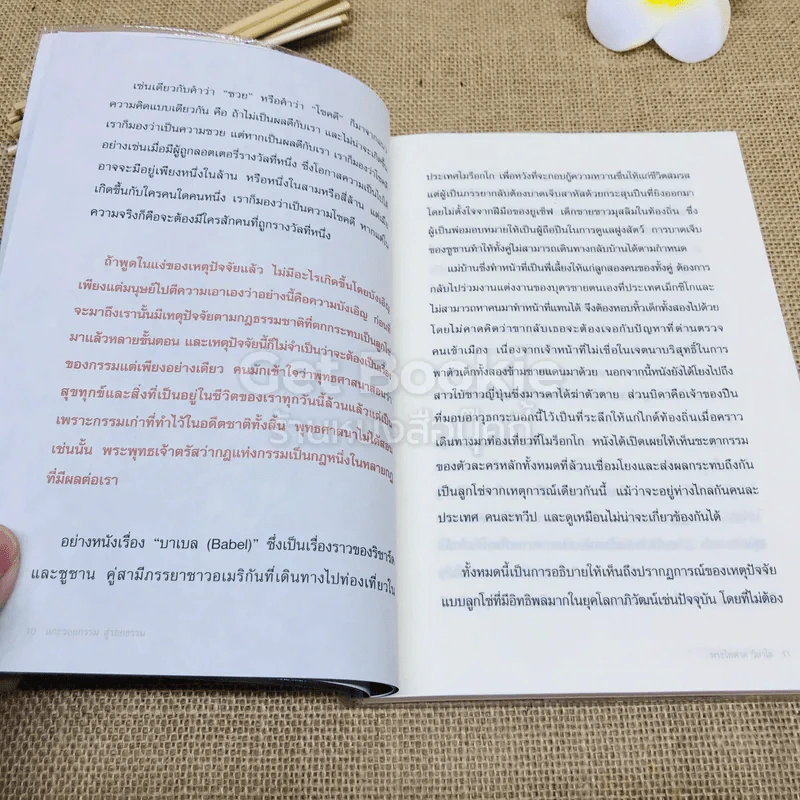 เช่นเดียวกับคำว่า "ซวย" หรือคำว่า "โชคดี" ก็มาจากฐาน
ความคิดแบบเดียวกัน คือ ถ้าไม่เป็นผลดีกับเรา และไม่น่าจะเกิดขึ้น
เราก็มองว่าเป็นความซวย แต่หากเป็นผลดีกับเรา เราก็มองว่าโชคดี
อย่างเช่นเมื่อมีผู้ถูกลอตเตอรี่รางวัลที่หนึ่ง ซึ่งโอกาสความเป็นไปได้
อาจจะมีอยู่เพียงหนึ่งในล้าน หรือหนึ่งในสามหรือสี่ล้าน แต่เมื่อ
เกิดขึ้นกับใครคนใดคนหนึ่ง เราก็มองว่าเป็นความโชคดี หากแต่ใน
ความจริงก็คือจะต้องมีใครสักคนที่ถูกรางวัลที่หนึ่ง
ถ้าพูดในแง่ของเหตุปัจจัยแล้ว ไม่มีอะไรเกิดขึ้นโดยบังเอิญ
เพียงแต่มนุษย์ไปตีความเอาเองว่าอย่างนี้คือความบังเอิญ ก่อนที่
จะมาถึงเรานั้นมีเหตุปัจจัยตามกฎธรรมชาติที่ตกกระทบเป็นลูกโซ่
มาแล้วหลายขั้นตอน และเหตุปัจจัยนี้ก็ไม่จำเป็นว่าจะต้องเป็นเรื่อง
ของกรรมแต่เพียงอย่างเดียว คนมักเข้าใจว่าพุทธศาสนาสอนว่า
สุขทุกข์และสิ่งที่เป็นอยู่ในชีวิตของเราทุกวันนี้ล้วนแล้วแต่เป็น
เพราะกรรมเก่าที่ทำไว้ในอดีตชาติทั้งสิ้น พุทธศาสนาไม่ได้สอน
เช่นนั้น พระพุทธเจ้าตรัสว่ากฎแห่งกรรมเป็นกฎหนึ่งในหลายกฎ
ที่มีผลต่อเรา
อย่างหนังเรื่อง "บาเบล (Babel)" ซึ่งเป็นเรื่องราวของริชาร์ด
และซูซาน คู่สามีภรรยาชาวอเมริกันที่เดินทางไปท่องเที่ยวใน
10
ประเทศโมร็อกโก เพื่อหวังที่จะกอบกู้ความหวานชื่นให้แก่ชีวิตสมรส
แต่ผู้เป็นภรรยากลับต้องบาดเจ็บสาหัสด้วยกระสุนปืนที่ยิงออกมา
โดยไม่ตั้งใจจากฝีมือของยูเซิฟ เด็กชายชาวมุสลิมในท้องถิ่น ซึ่ง
ผู้เป็นพ่อมอบหมายให้เป็นผู้ถือปืนในการดูแลฝูงสัตว์ การบาดเจ็บ
ของซูซานทำให้ทั้งคู่ไม่สามารถเดินทางกลับบ้านได้ตามกำหนด
แม่บ้านซึ่งทำหน้าที่เป็นพี่เลี้ยงให้แก่ลูกสองคนของทั้งคู่ ต้องการ
กลับไปร่วมงานแต่งงานของบุตรชายตนเองที่ประเทศเม็กซิโกและ
ไม่สามารถหาคนมาทำหน้าที่แทนได้ จึงต้องหอบหิ้วเด็กทั้งสองไปด้วย
โดยไม่คาดคิดว่าขากลับเธอจะต้องเจอกับปัญหาที่ด่านตรวจ
คนเข้าเมือง เนื่องจากเจ้าหน้าที่ไม่เชื่อในเจตนาบริสุทธิ์ในการ
พาตัวเด็กทั้งสองข้ามชายแดนมาด้วย นอกจากนี้หนังยังได้โยงไปถึง
สาวใบ้ชาวญี่ปุ่นซึ่งมารดาได้ฆ่าตัวตาย ส่วนบิดาคือเจ้าของปืน
ที่มอบอาวุธกระบอกนี้ไว้เป็นที่ระลึกให้แก่ไกด์ท้องถิ่นเมื่อคราว
เดินทางมาท่องเที่ยวที่โมร็อกโก หนังได้เปิดเผยให้เห็นชะตากรรม
ของตัวละครหลักทั้งหมดที่ล้วนเชื่อมโยงและส่งผลกระทบถึงกัน
เป็นลูกโซ่จากเหตุการณ์เดียวกันนี้ แม้ว่าจะอยู่ห่างไกลกันคนละ
ประเทศ คนละทวีป และดูเหมือนไม่น่าจะเกี่ยวข้องกันได้
ทั้งหมดนี้เป็นการอธิบายให้เห็นถึงปรากฏการณ์ของเหตุปัจจัย
แบบลูกโซ่ที่มีอิทธิพลมากในยุคโลกาภิวัตน์เช่นปัจจุบัน โดยที่ไม่ต้อง
พระไพศาล วิสาโล 11
Get Bookie
ร้านหนังสือมีคุกกี้